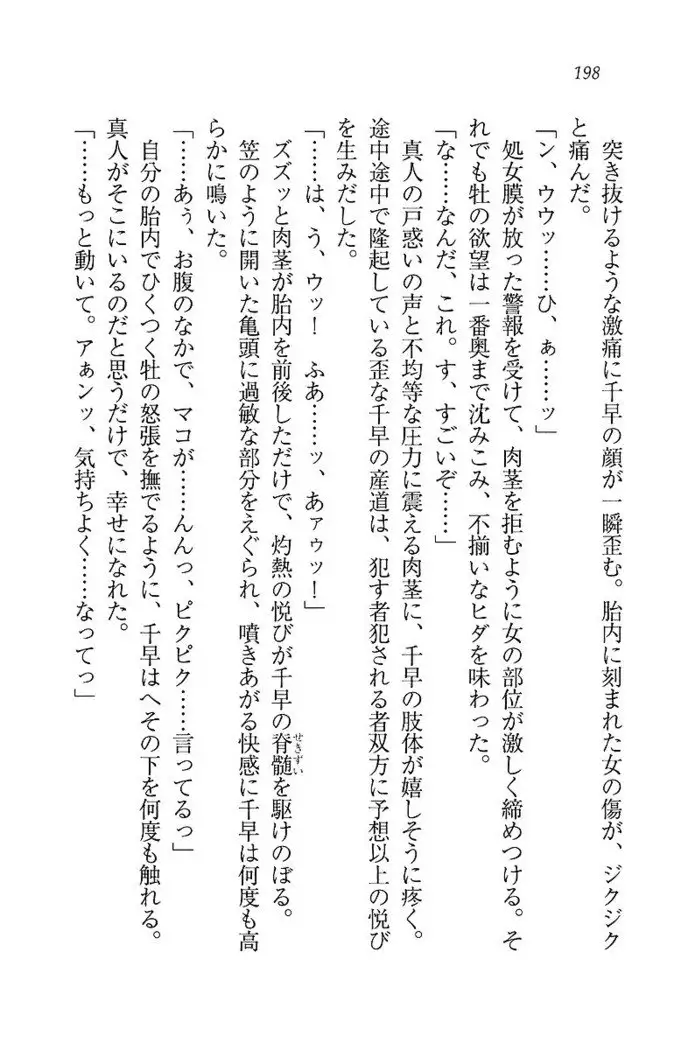 198
突き抜けるような激痛に千早の顔が一瞬歪む。胎内に刻まれた女の傷が、ジクジク
と痛んだ。
「ン、ウウッ……ひ、ぁ……ッ」
処女膜が放った警報を受けて、肉茎を拒むように女の部位が激しく締めつける。そ
れでも牡の欲望は一番奥まで沈みこみ、不揃いなヒダを味わった。
「な……なんだ、これ。す、すごいぞ……」
真人の戸惑いの声と不均等な圧力に震える肉茎に、千早の肢体が嬉しそうに疼く。
途中途中で隆起している歪な千早の産道は、犯す者犯される者双方に予想以上の悦び
を生みだした。
「……は、う、ウッ！　ふあ……ッ、あァゥッ！」
ズズッと肉茎が胎内を前後しただけで、灼熱の悦びが千早の脊髄せきずいを駆けのぼる。
笠のように開いた亀頭に過敏な部分をえぐられ、噴きあがる快感に千早は何度も高
らかに鳴いた。
「……あぅ、お腹のなかで、マコが……んんっ、ピクピク……言ってるっ」
自分の胎内でひくつく牡の怒張を撫でるように、千早はへその下を何度も触れる。
真人がそこにいるのだと思うだけで、幸せになれた。
「……もっと動いて。アぁンッ、気持ちよく……なってっ」